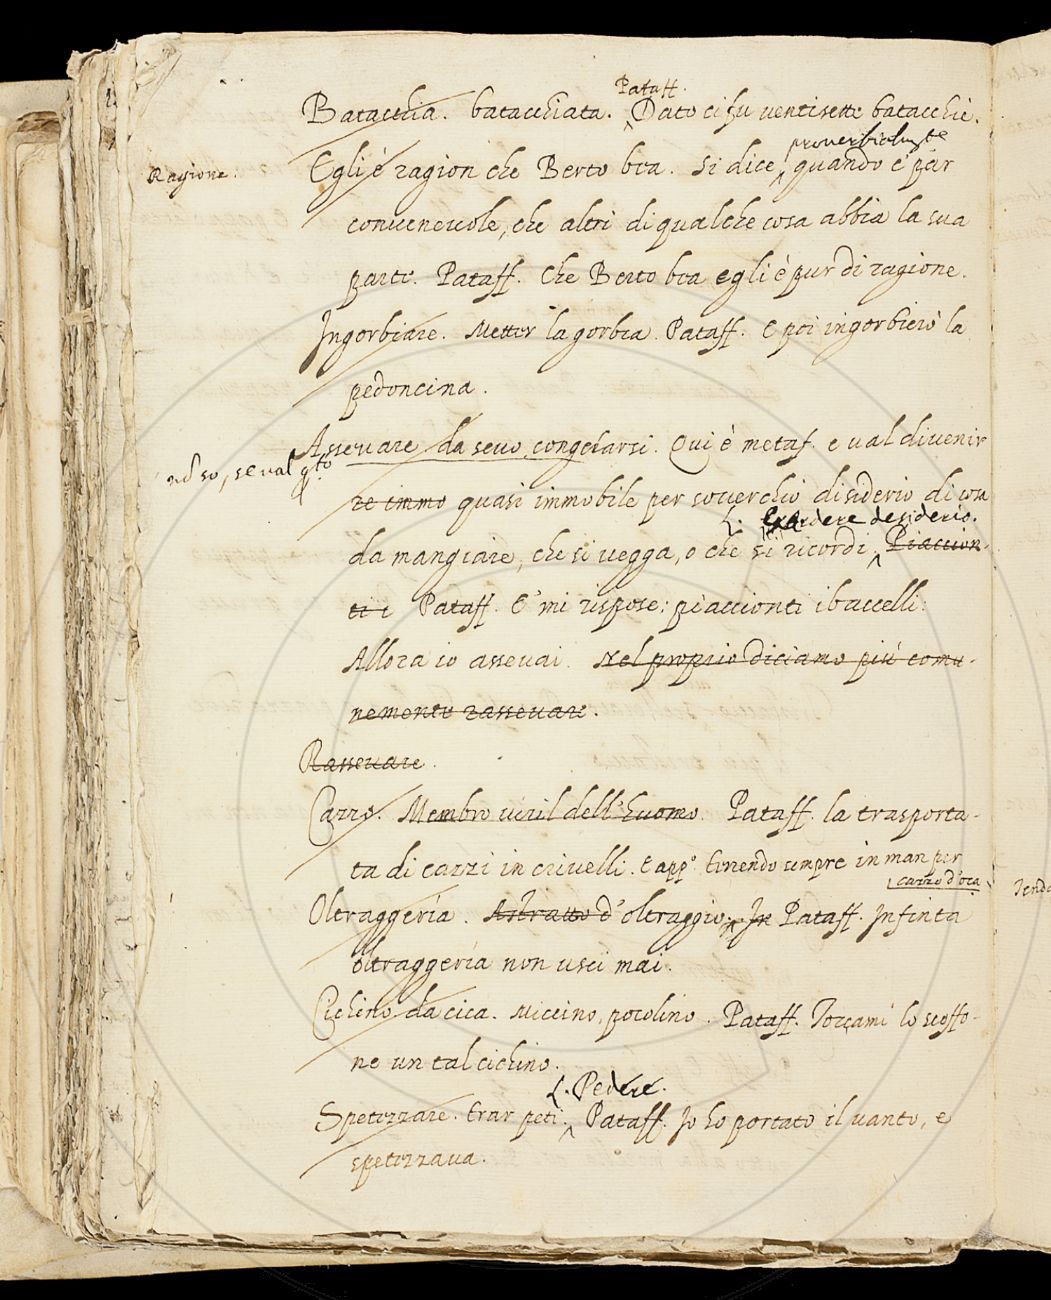 Pataff.
Batacchia. batacchiata. Dato ci fu ventisette batacchie.
proverbialmte
Ragione. Egli é ragion che Berto bea. Si dice, quando é par
conueneuole, che altri di qualche cosa abbia la sua
parte. Pataff. Che Berto bea egli è pur di ragione.
Ingorbiare. Metter la gorbia. Pataff. E poi ingorbierò la
pedoncina.
Asseuare da seuo, congelarsi. Qui è metaf. e val diuenir
re immo quasi immobile per souerchio disiderio di cosa
L. Exardere desiderio.
da mangiare, che si uegga, o che si ricordi, Piaccion-
ti i Pataff. E' mi rispose: piaccionti i baccelli:
Allora io asseuai. Nel proprio diciamo piú comu-
nemente rasseuare.
Rasseuare.
Cazzo. Membro uiril dell'huomo. Pataff. la trasporta-
ta di cazzi in criuelli. E app.o tenendo sempre in man per
cazzo d'oca
Oltraggería. Astratto d'oltraggio. In Pataff. Infinta
oltraggería non uscì mai.
Cichino da cica. Miccino, pocolino. Pataff. Torcami lo scoffo-
ne un tal cichino.
L. Pedere.
Spetezzare. Trar peti. Pataff. Io ho portato il uanto, e
spetezzaua.